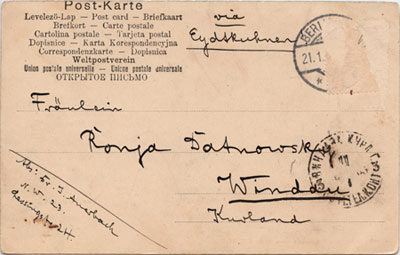 Post-Karte
Levelező-Lap — Post card — Briefkaart
Brefkort — Carte postale
Cartolina postale — Tarjeta postal
Dopisnice — Karta Korespondencyjna
Correspondenzkarte — Dopisnica
Weltpostverein
Union postale universelle — Unione postale universale
ОТКРЫТОЕ ПИСЬМО
via
Eydtkuhnen
BERL
21.1.
Fräulein
Ronja Datnowsky
Windau
Kurland
11
Abs: Dr. J. Auerbach
N.W. 23.